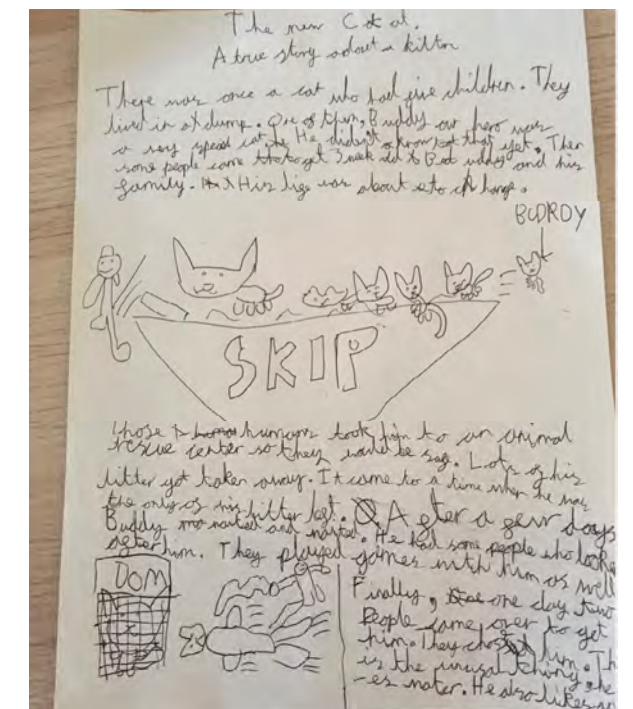 The new Cat.
A true story adout a kitton
There was once a cat who had five children. They
lived in a dump. One of them, Buddy our hero was
a very speial cat. He didn't know that yet. Then
some people came to get 3 week old Buddy and his
family. His life was about to change.
BUDDY
SKIP
Those humans took him to an animal
rescue center so they would be safe. Lots of his
litter got taken away. It came to a time wher he was
the only of his litter left. After a few days
Buddy waited and waited. He had some people who looke
after him. They played games with him as well
DOM
Finally, one day two
People came over to get
him. They chose him. Th
is the unusal thing, he
-es water. He also likes